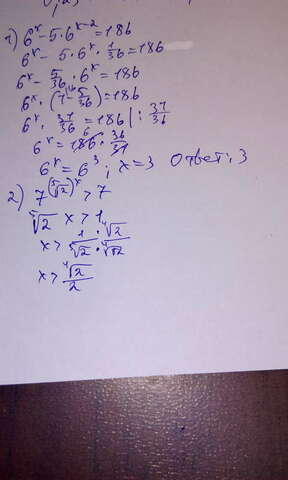 1) 6^x - 5·6^{x-2} = 186
6^x - 5·6^x·\frac{1}{36} = 186
6^x - \frac{5}{36}·6^x = 186
6^x·(1 - \frac{5}{36}) = 186
6^x·\frac{31}{36} = 186 | : \frac{31}{36}
6^x = 186·\frac{36}{31}
6^x = 6^3; x = 3 Ответ: 3
2) 7^{(\sqrt[5]{2})^x} > 7
\sqrt[5]{2} x > 1
x > \frac{1·\sqrt[4]{2}}{\sqrt[5]{2}·\sqrt[4]{2}}
x > \frac{\sqrt[4]{2}}{2}